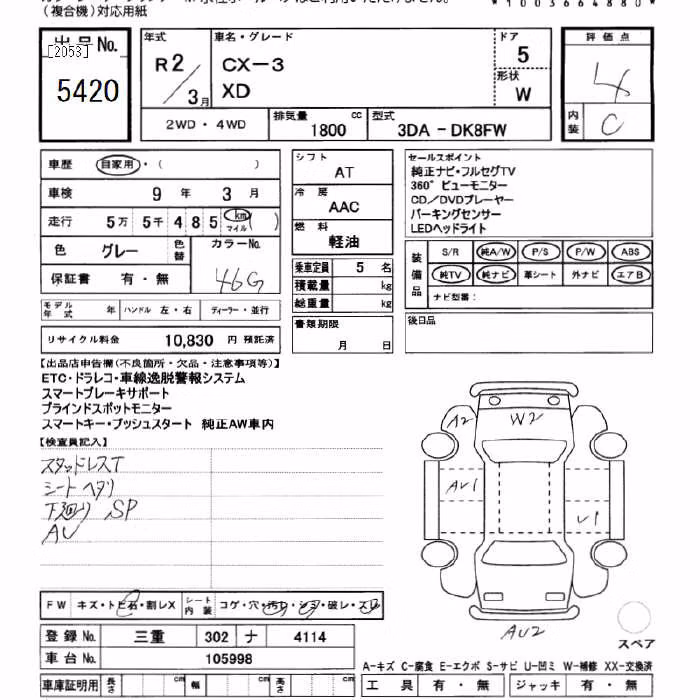 (複合機)対応用紙
*1003664880*
出品No.
[2053]
5420
年式
R2/3月
車名・グレード
CX-3
XD
ドア
5
形状
W
2WD・4WD
排気量
1800 cc
型式
3DA-DK8FW
評価点
4
内装
C
車歴 自家用・( )
車検 9年 3月
走行 5万 5千 4 8 5 km マイル ( )
色 グレー
色替
カラーNo.
46G
保証書 有・無
シフト
AT
冷房
AAC
燃料
軽油
乗車定員 5 名
積載量 kg
総重量 kg
書類期限
月 日
セールスポイント
純正ナビ・フルセグTV
360°ビューモニター
CD/DVDプレーヤー
パーキングセンサー
LEDヘッドライト
装備品
S/R 純A/W P/S P/W ABS
純TV 純ナビ 革シート 外ナビ エアB
ナビ型番:
後日品
モデル年式 年 ハンドル 左・右 ディーラー・並行
リサイクル料金 10,830 円 預託済
【出品店申告欄(不良箇所・欠品・注意事項等)】
ETC・ドラレコ・車線逸脱警報システム
スマートブレーキサポート
ブラインドスポットモニター
スマートキー・プッシュスタート 純正AW車内
【検査員記入】
スタッドレスT
シートヘタリ
下廻り SP
AU
A2
W2
AU1
U1
AU2
スペア
FW キズ・トビ石・割レX
シート内装 コゲ・穴・汚レ・シミ・破レ・スレ
登録No. 三重 302 ナ 4114
車台No. 105998
車庫証明用 長さ cm 幅 cm 高さ cm
A-キズ C-腐食 E-エクボ S-サビ U-凹ミ W-補修 XX-交換済
工具 有・無 ジャッキ 有・無